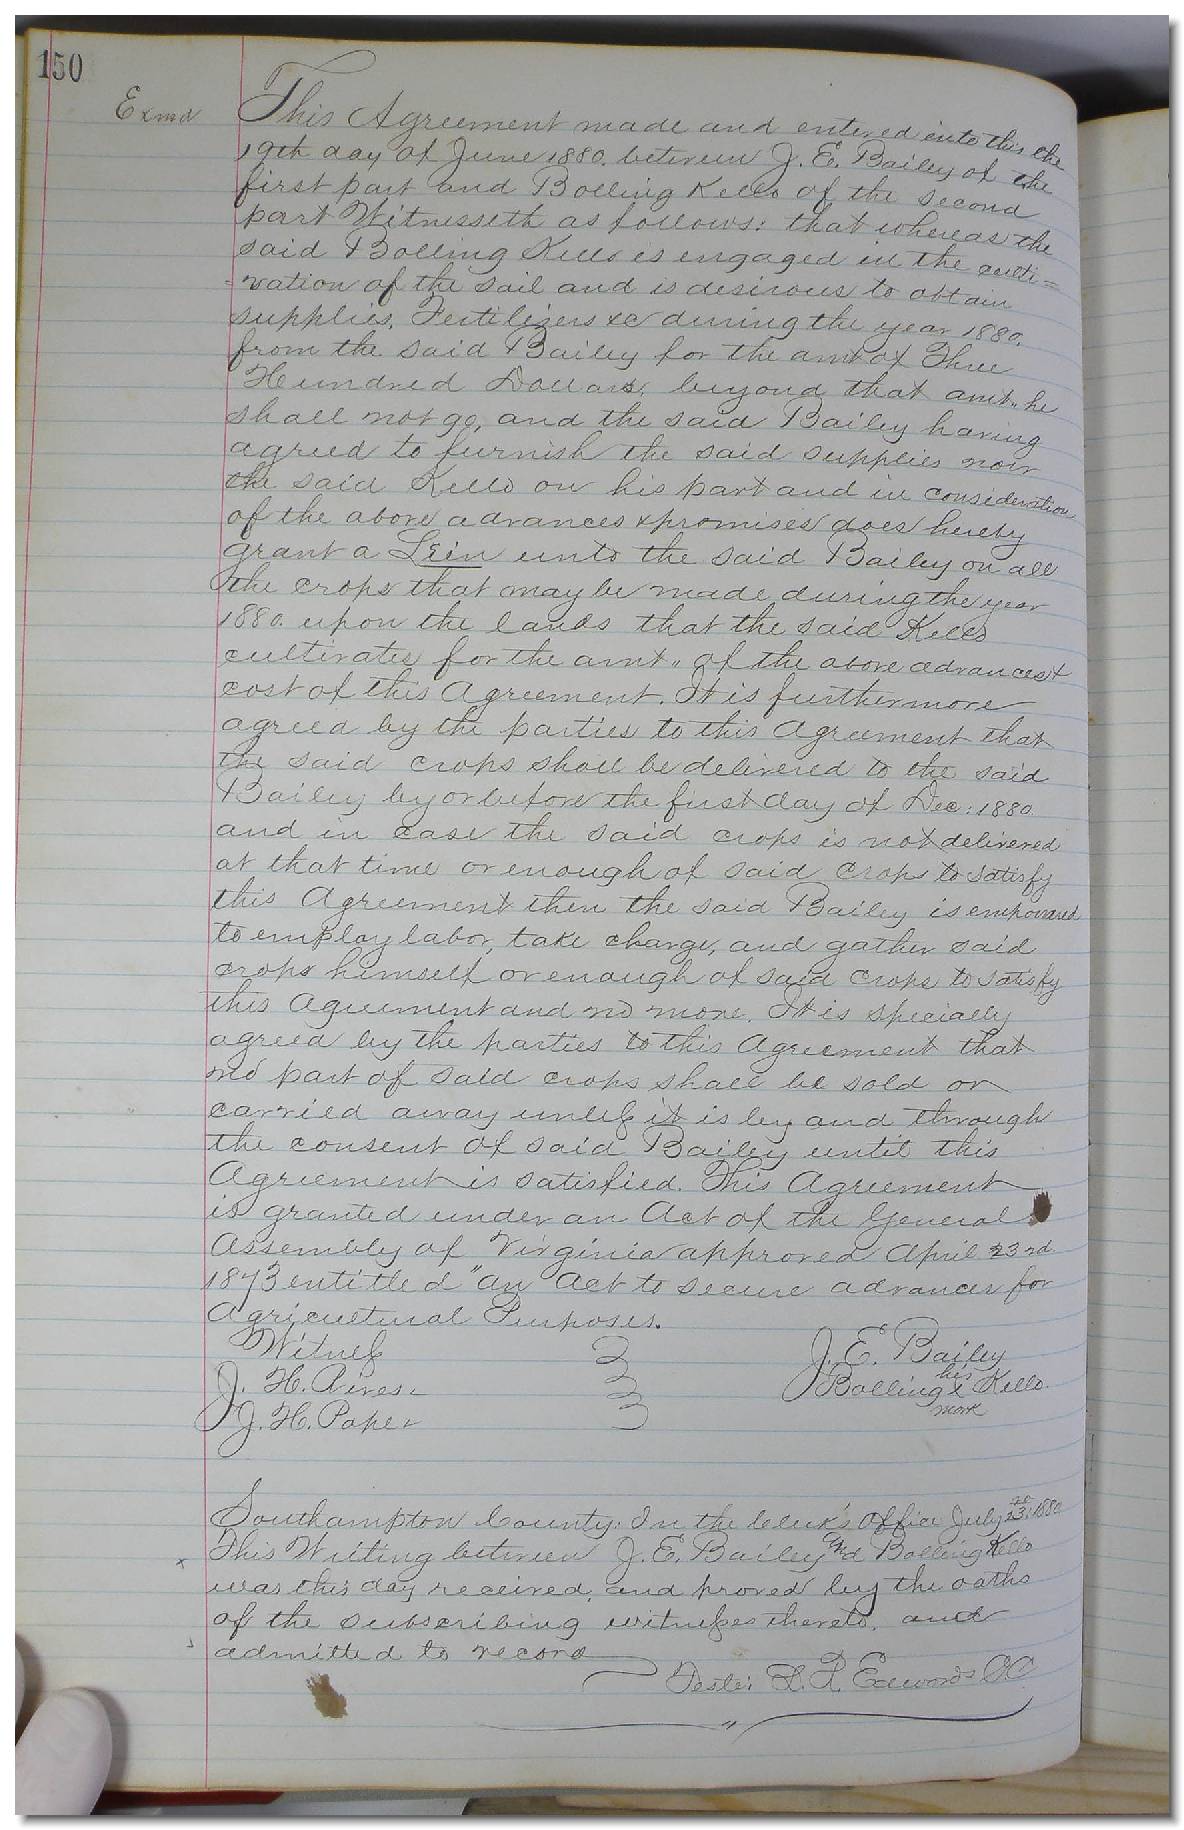 150
Exmd
This Agreement made and entered into this the
19th day of June 1880. between J. E. Bailey of the
first part and Bolling Kello of the second
part Witnesseth as follows: that whereas the
said Bolling Kello is engaged in the culti=
-vation of the sail and is desirous to obtain
supplies, Fertilizers &c during the year 1880.
from the said Bailey for the amt of Three
Hundred Dollars, beyond that amt. he
shall not go, and the said Bailey having
agreed to furnish the said supplies now
the said Kello on his part and in consideration
of the above advances & promises does hereby
grant a Lein unto the said Bailey on all
the crops that may be made during the year
1880. upon the lands that the said Kello
cultivates for the amt,, of the above advances &
cost of this Agreement. It is furthermore
agreed by the parties to this Agreement that
the said crops shall be delivered to the said
Bailey by or before the first day of Dec: 1880
and in case the said crops is not delivered
at that time or enough of said crops to satisfy
this Agreement then the said Bailey is empowered
to employ labor, take charge, and gather said
crops himself or enough of said crops to satisfy
this Agreement and no more. It is specially
agreed by the parties to this Agreement that
no part of said crops shall be sold or
carried away unless it is by and through
the consent of said Bailey until this
Agreement is satisfied. This Agreement
is granted under an Act of the General
Assembly of Virginia approved April 23rd
1873 entitled "an Act to secure advances for
Agricultural Purposes.
Witness J. E. Bailey
his
J. H. Bolling x Kello
mark
J. H. Pope
Southampton County: In the Clerk's Office July 23rd 1880
This Writing between J. E. Bailey and Bolling Kello
was this day received, and proved by the oaths
of the subscribing witnesses thereto, and
admitted to record
Teste: L. R. Edwards CC